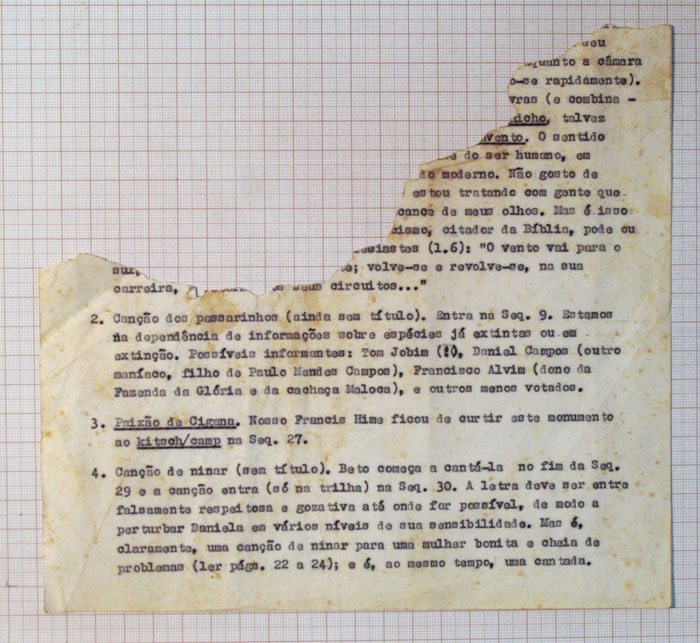 seu
quanto a câmara
o-se rapidamente).
vras (e combina -
icho, talvez
vento. O sentido
do ser humano, em
do moderno. Não gosto de
estou tratando com gente que
cance de meus olhos. Mas é isso
cismo, citador da Bíblia, pode ou
esiastes (1.6): "O vento vai para o
sul, e; volve-se e revolve-se, na sua
carreira, seus circuitos..."
2. Canção dos passarinhos (ainda sem título). Entra na Seq. 9. Estamos
na dependência de informações sobre espécies já extintas ou em
extinção. Possíveis informantes: Tom Jobim (!), Daniel Campos (outro
maníaco, filho de Paulo Mendes Campos), Francisco Alvim (dono da
Fazenda da Glória e da cachaça Maloca), e outros menos votados.
3. Paixão de Cigana. Nosso Francis Hime ficou de curtir este monumento
ao kitsch/camp na Seq. 27.
4. Canção de ninar (sem título). Beto começa a cantá-la no fim da Seq.
29 e a canção entra (só na trilha) na Seq. 30. A letra deve ser entre
falsamente respeitosa e gozativa até onde for possível, de modo a
perturbar Daniela em vários níveis de sua sensibilidade. Mas é,
claramente, uma canção de ninar para uma mulher bonita e cheia de
problemas (ler págs. 22 a 24); e é, ao mesmo tempo, uma cantada.